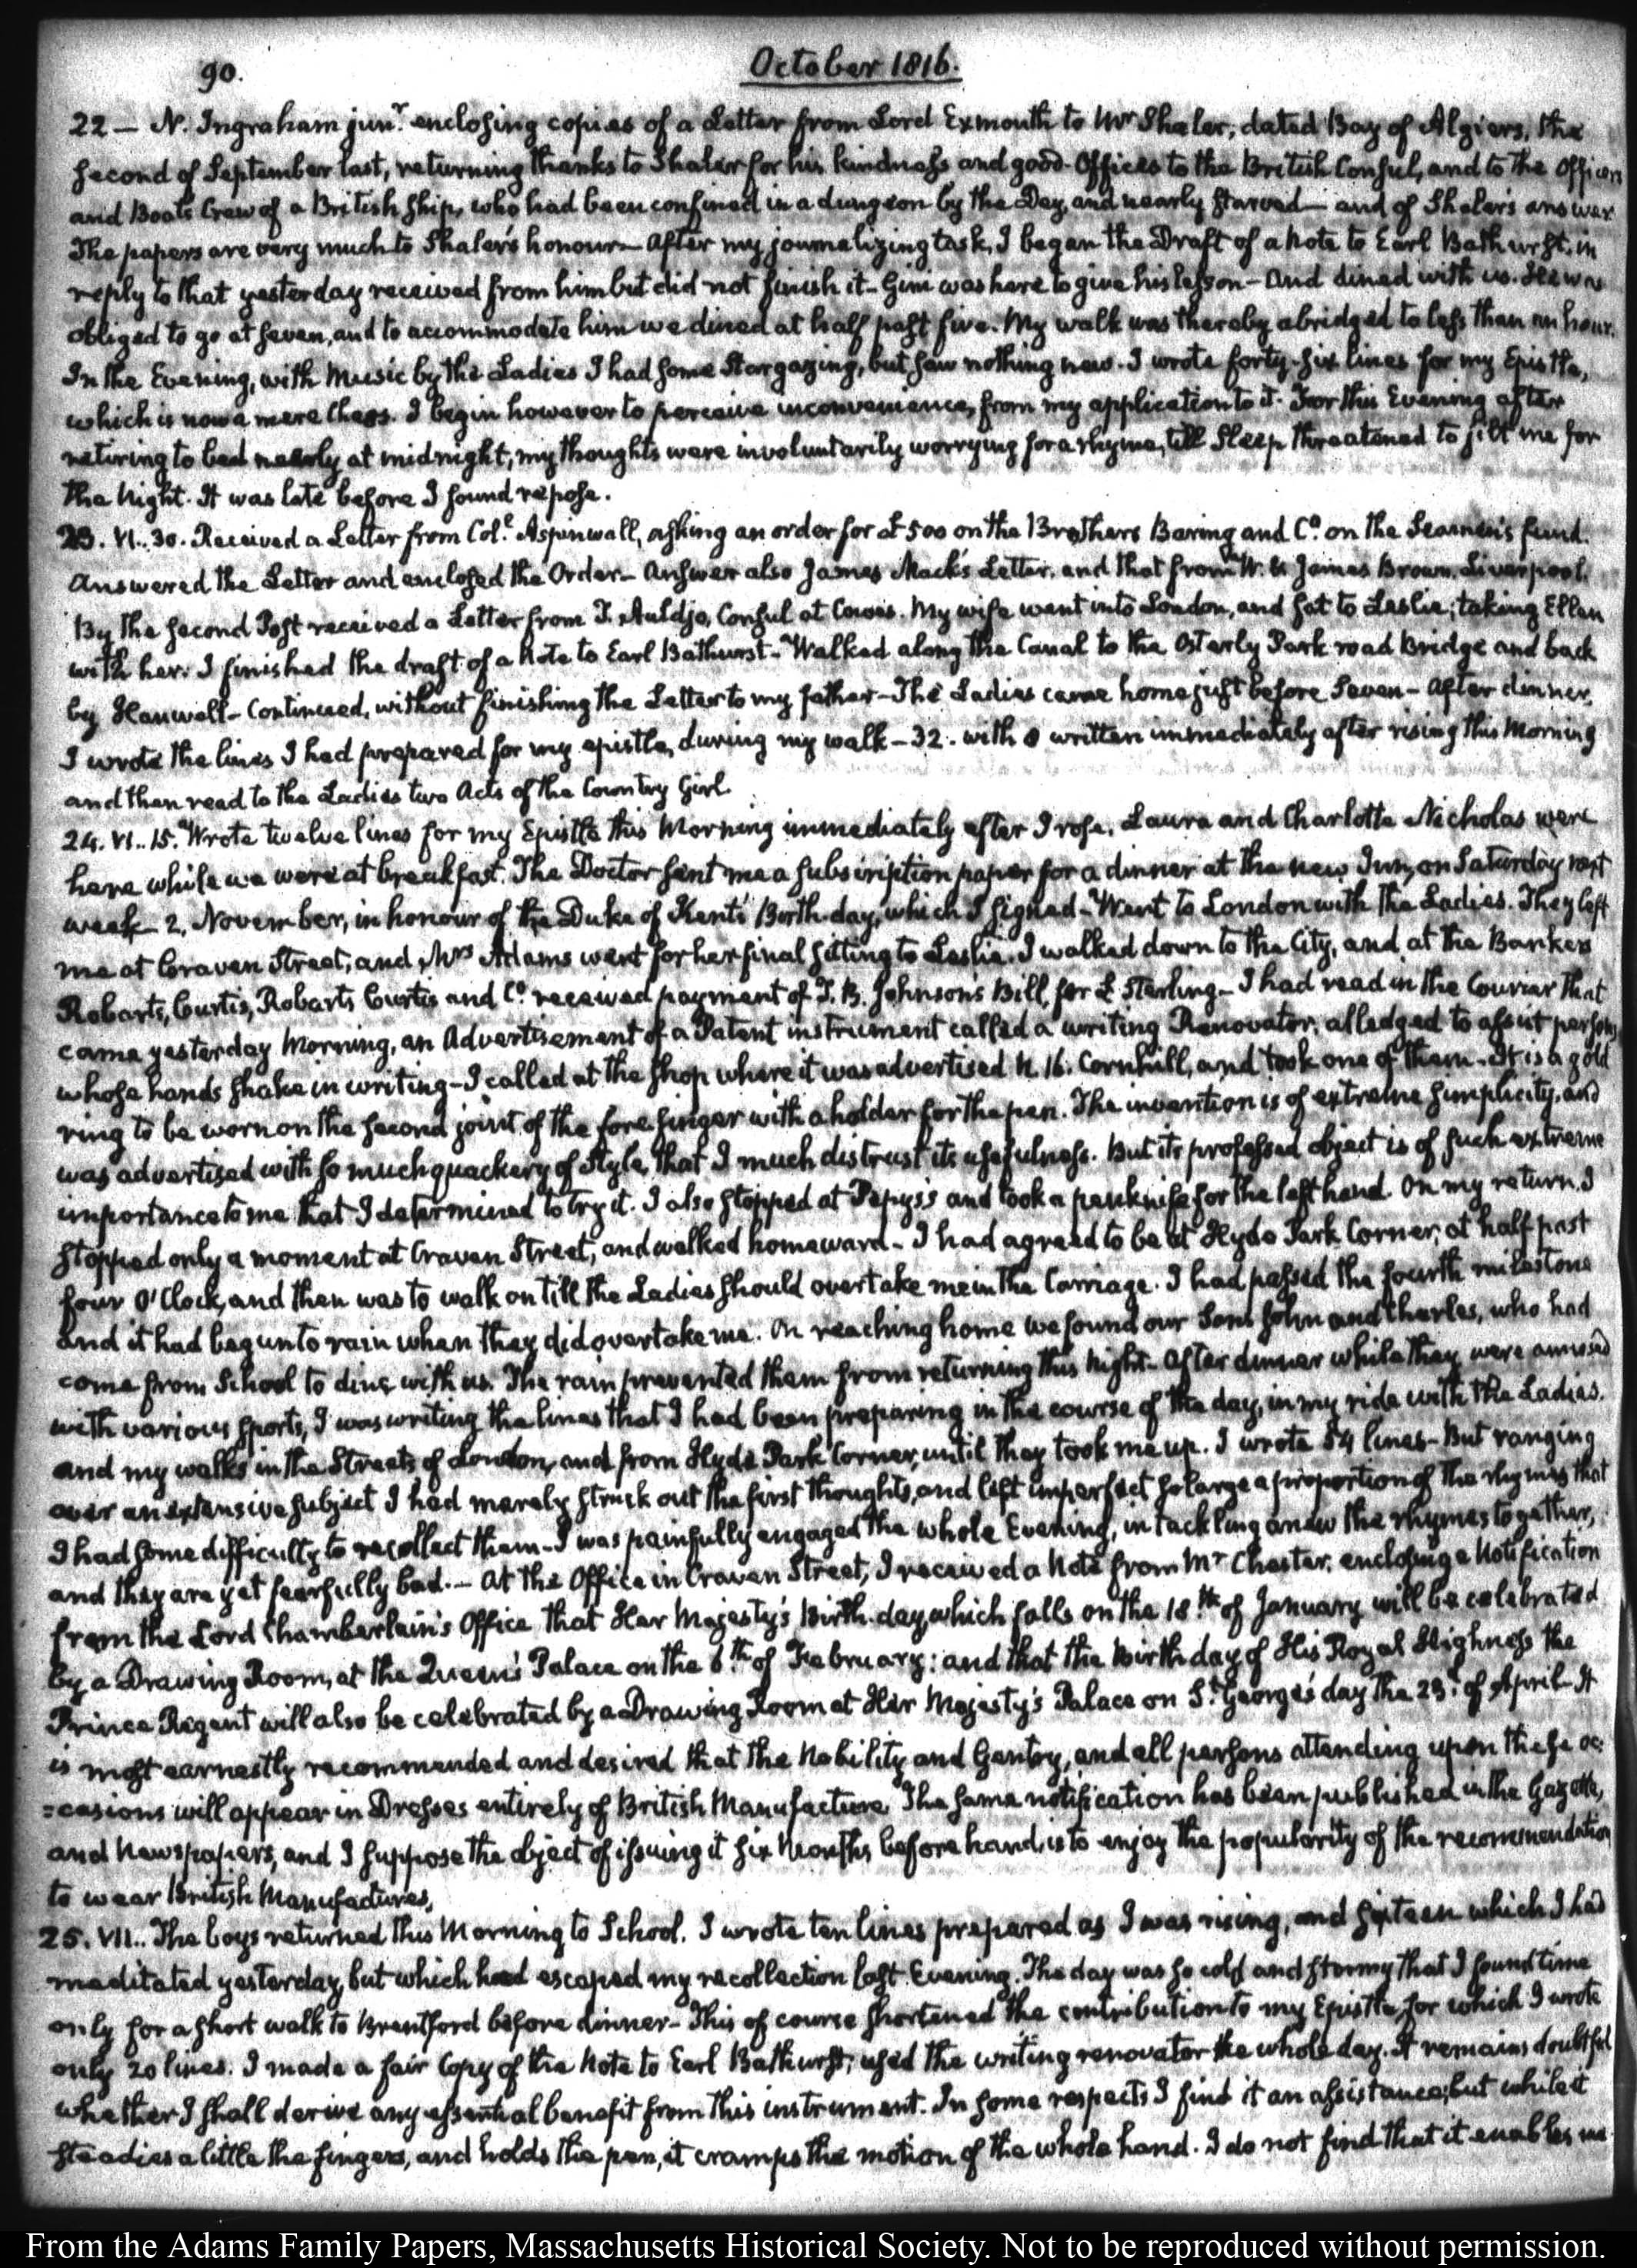 90.
October 1816.
22 — N. Ingraham junr. enclosing copies of a Letter from Lord Exmouth to Mr Shaler, dated Bay of Algiers, the
second of September last, returning thanks to Shaler for his kindness and good Offices to the British Consul, and to the Officers
and Boats Crew of a British ship, who had been confined in a dungeon by the Dey, and nearly starved — and of Shaler's answer
The papers are very much to Shaler's honour — After my journalizing task, I began the Draft of a Note to Earl Bathurst, in
reply to that yesterday received from him but did not finish it — Gini was here to give his lesson — And dined with us. He was
obliged to go at seven, and to accommodate him we dined at half past five. My walk was thereby abridged to less than an hour.
In the Evening, with Music by the Ladies I had some Stargazing, but saw nothing new. I wrote forty-six lines for my Epistle,
which is now a mere Chaos. I begin however to perceive inconvenience, from my application to it. For this Evening after
retiring to bed nearly at midnight, my thoughts were involuntarily worrying for a rhyme, till Sleep threatened to jilt me for
the Night. It was late before I found repose.
23. VI..30. Received a Letter from Col.l Aspinwall, asking an order for £500 on the Brothers Baring and Co. on the Seamen's fund.
Answered the Letter and enclosed the Order — Answer also James Mack's Letter, and that from W. & James Brown. Liverpool.
By the second Post received a Letter from T. Auldjo, Consul at Cowes. My wife went into London, and sat to Leslie; taking Ellen
with her. I finished the draft of a Note to Earl Bathurst — Walked along the Canal to the Osterly Park road Bridge and back
by Hanwell — Continued, without finishing the Letter to my father — The Ladies came home just before Seven — After dinner,
I wrote the lines I had prepared for my epistle, during my walk — 32. with 8 written immediately after rising this Morning
and then read to the Ladies two Acts of the Country Girl.
24. VI..15. Wrote twelve lines for my Epistle this Morning immediately after I rose. Laura and Charlotte Nicholas were
here while we were at breakfast. The Doctor sent me a subscription paper for a dinner at the new Inn, on Saturday next
week 2. November, in honour of the Duke of Kent's Birth-day, which I signed — Went to London with the Ladies. They left
me at Craven Street, and Mrs Adams went for her final sitting to Leslie. I walked down to the City, and at the Bankers
Robarts, Curtis, Robarts Curtis and Co. received payment of T. B. Johnson's Bill, for £ Sterling — I had read in the Courier that
came yesterday Morning, an Advertisement of a Patent instrument called a writing Renovator; alledged to assist persons
whose hands shake in writing — I called at the shop where it was advertised N. 16. Cornhill, and took one of them — It is a gold
ring to be worn on the second joint of the fore finger with a holder for the pen. The invention is of extreme simplicity, and
was advertised with so much quackery of Style, that I much distrust its usefulness. But its professed object is of such extreme
importance to me that I determined to try it. I also stopped at Pepys's and took a penknife for the left hand. On my return, I
stopped only a moment at Craven Street, and walked homeward — I had agreed to be at Hyde Park Corner, at half past
four O'Clock, and then was to walk on till the Ladies should overtake me in the Carriage. I had passed the fourth milestone
and it had begun to rain when they did overtake me. On reaching home we found our Sons John and Charles, who had
come from School to dine with us. The rain prevented them from returning this Night — After dinner while they were amused
with various sports, I was writing the lines that I had been preparing in the course of the day, in my ride with the Ladies,
and my walks in the Streets of London, and from Hyde Park Corner, until they took me up. I wrote 54 lines — But ranging
over an extensive subject I had merely struck out the first thoughts, and left imperfect so large a proportion of the rhymes that
I had some difficulty to recollect them — I was painfully engaged the whole Evening, in tackling anew the rhymes together,
and they are yet fearfully bad. — At the Office in Craven Street, I received a Note from Mr Chester, enclosing a Notification
from the Lord Chamberlain's Office that Her Majesty's Birth-day, which falls on the 18.th of January will be celebrated
by a Drawing Room, at the Queen's Palace on the 6.th of February: and that the Birth day of His Royal Highness the
Prince Regent will also be celebrated by a Drawing Room at Her Majesty's Palace on St. George's day the 23.d of April — It
is most earnestly recommended and desired that the Nobility and Gentry, and all persons attending upon these oc:
=casions will appear in Dresses entirely of British Manufacture. The same notification has been published in the Gazette,
and Newspapers, and I suppose the object of issuing it six Months before hand, is to enjoy the popularity of the recommendation
to wear British Manufactures.
25. VII.. The boys returned this Morning to School. I wrote ten lines prepared as I was rising, and sixteen which I had
meditated yesterday, but which had escaped my recollection last Evening. The day was so cold and stormy that I found time
only for a short walk to Brentford before dinner — This of course shortened the contribution to my Epistle, for which I wrote
only 20 lines. I made a fair Copy of the Note to Earl Bathurst; used the writing renovator the whole day. It remains doubtful
whether I shall derive any essential benefit from this instrument. In some respects I find it an assistance; but while it
steadies a little the fingers, and holds the pen, it cramps the motion of the whole hand. I do not find that it enables me
From the Adams Family Papers, Massachusetts Historical Society. Not to be reproduced without permission.